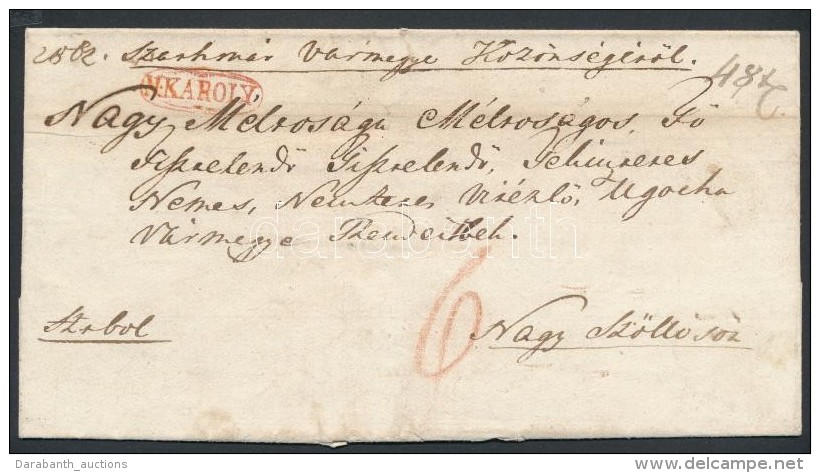 2862. Szathmár Vármegye Közönségéröl.
N.KAROLY.
Nagy Méltoságu Méltoságos, Fö
Tisztelendö Tisztelendö, Tekintetes
Nemes, Nemzetes Vitézlö, Ugocha
Vármegye Rendeihek.
6
Nagy Szöllösöz
darabanth
Darabanth_auctions
http://www.delcampe.net